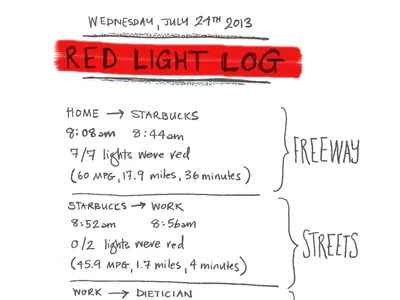 WEDNESDAY, JULY 24TH 2013
RED LIGHT LOG
HOME → STARBUCKS
8:08am 8:44am
7/7 lights were red
(60 MPG, 17.9 miles, 36 minutes)
FREEWAY
STARBUCKS → WORK
8:52am 8:56am
0/2 lights were red
(45.9 MPG, 1.7 miles, 4 minutes)
STREETS
WORK → DIETICIAN